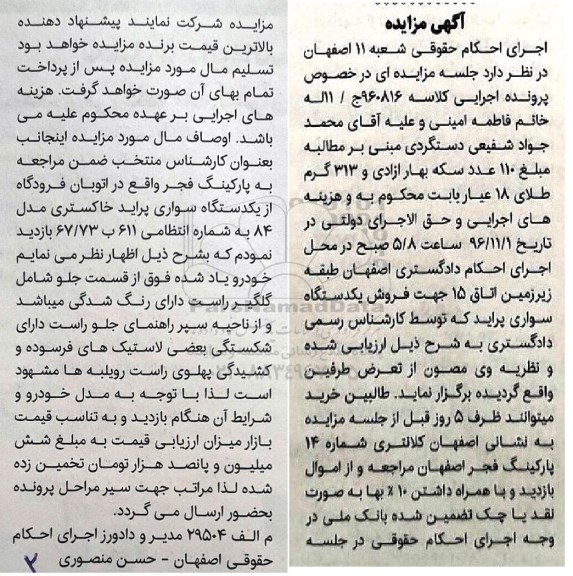 آگهی مزایده
اجرای احکام حقوقی شعبه ۱۱ اصفهان
در نظر دارد جلسه مزایده ای در خصوص
پرونده اجرایی کلاسه ۹۶۰۸۱۶ج / ۱۱له
خانم فاطمه امینی و علیه آقای محمد
جواد شفیعی دستگردی مبنی بر مطالبه
مبلغ ۱۱۰ عدد سکه بهار ازادی و ۳۱۳ گرم
طلای ۱۸ عیار بابت محکوم به و هزینه
های اجرایی و حق الاجرای دولتی در
تاریخ ۹۶/۱۱/۱ ساعت ۵/۸ صبح در محل
اجرای احکام دادگستری اصفهان طبقه
زیرزمین اتاق ۱۵ جهت فروش یکدستگاه
سواری پراید که توسط کارشناس رسمی
دادگستری به شرح ذیل ارزیابی شده
و نظریه وی مصون از تعرض طرفین
واقع گردیده برگزار نماید. طالبین خرید
میتوانند ظرف ۵ روز قبل از جلسه مزایده
به نشانی اصفهان کلانتری شماره ۱۴
پارکینگ فجر اصفهان مراجعه و از اموال
بازدید و با همراه داشتن ۱۰ ٪ بها به صورت
نقد یا چک تضمین شده بانک ملی در
وجه اجرای احکام حقوقی در جلسه
مزایده شرکت نمایند پیشنهاد دهنده
بالاترین قیمت برنده مزایده خواهد بود
تسلیم مال مورد مزایده پس از پرداخت
تمام بهای آن صورت خواهد گرفت. هزینه
های اجرایی بر عهده محکوم علیه می
باشد. اوصاف مال مورد مزایده اینجانب
بعنوان کارشناس منتخب ضمن مراجعه
به پارکینگ فجر واقع در اتوبان فرودگاه
از یکدستگاه سواری پراید خاکستری مدل
۸۴ به شماره انتظامی ۶۱۱ ب ۶۷/۷۳ بازدید
نمودم که بشرح ذیل اظهار نظر می نمایم
خودرو یاد شده فوق از قسمت جلو شامل
گلگیر راست دارای رنگ شدگی میباشد
و از ناحیه سپر راهنمای جلو راست دارای
شکستگی بعضی لاستیک های فرسوده و
کشیدگی پهلوی راست رویلبه ها مشهود
است لذا با توجه به مدل خودرو و
شرایط آن هنگام بازدید و به تناسب قیمت
بازار میزان ارزیابی قیمت به مبلغ شش
میلیون و پانصد هزار تومان تخمین زده
شده لذا مراتب جهت سیر مراحل پرونده
بحضور ارسال می گردد.
م الف ۲۹۵۰۴ مدیر و دادورز اجرای احکام
حقوقی اصفهان - حسن منصوری
۲
ParsNamadData